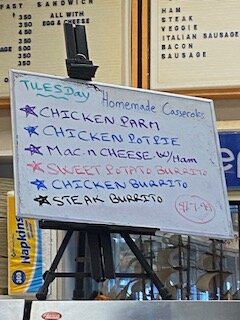 FAST SANDWICH
EGG & CHEESE
350
350
SAUSAGE
350
450
HAM
STEAK
VEGGIE
ITALIAN SAUSAGE
BACON
SAUSAGE
TUESDAY
Homemade Casseroles
CHICKEN PARM
CHICKEN POTPIE
MAC N CHEESE W/Ham
SWEET POTATO BURRITO
CHICKEN BURRITO
STEAK BURRITO
Napkins